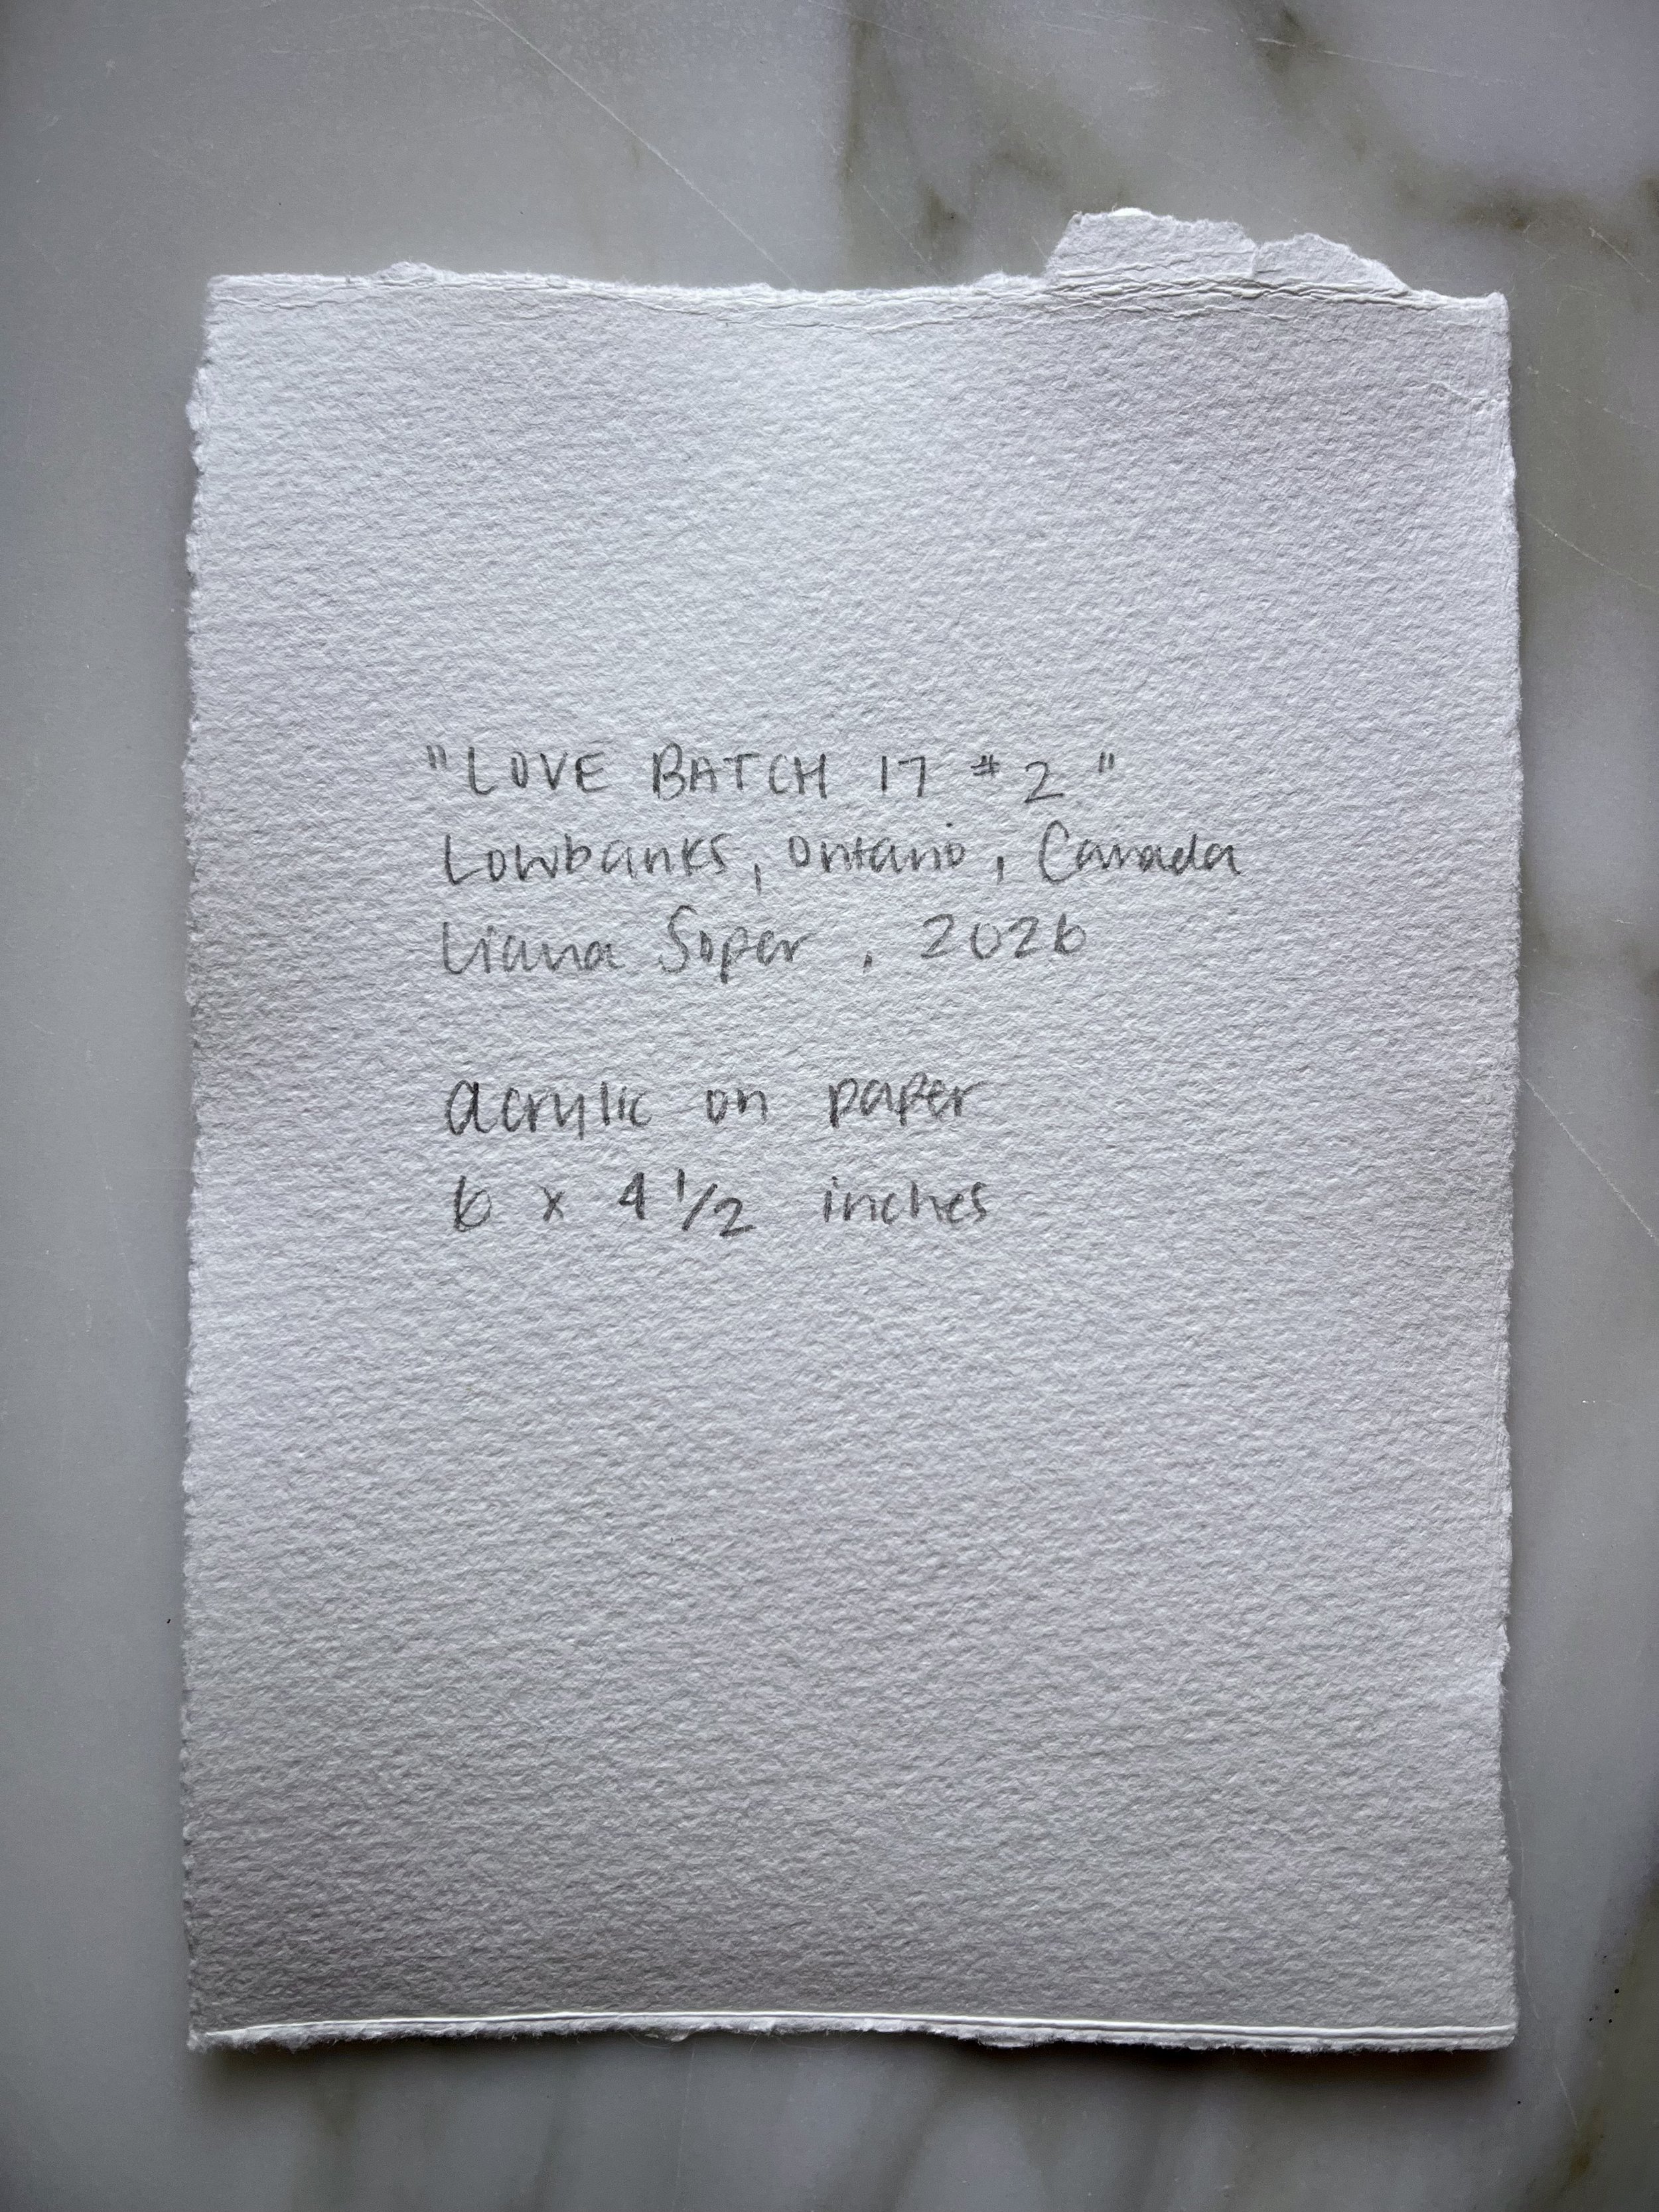 "LOVE BATCH 17 #2"
Lowbanks, Ontario, Canada
Liana Soper, 2026
acrylic on paper
6 x 4 1/2 inches